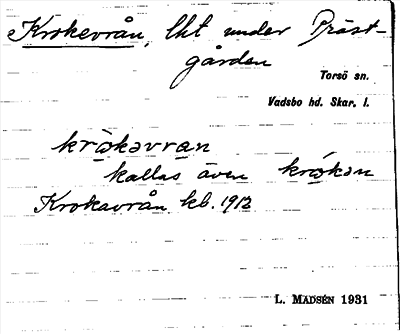 Krokevrån, lht under Präst-
gården
Torsö sn.
Vadsbo hd. Skar. l.
krɷ̀kəvran
kallas även krɷ́kən
Krokavrån kb. 1912
L. MADSÉN 1931